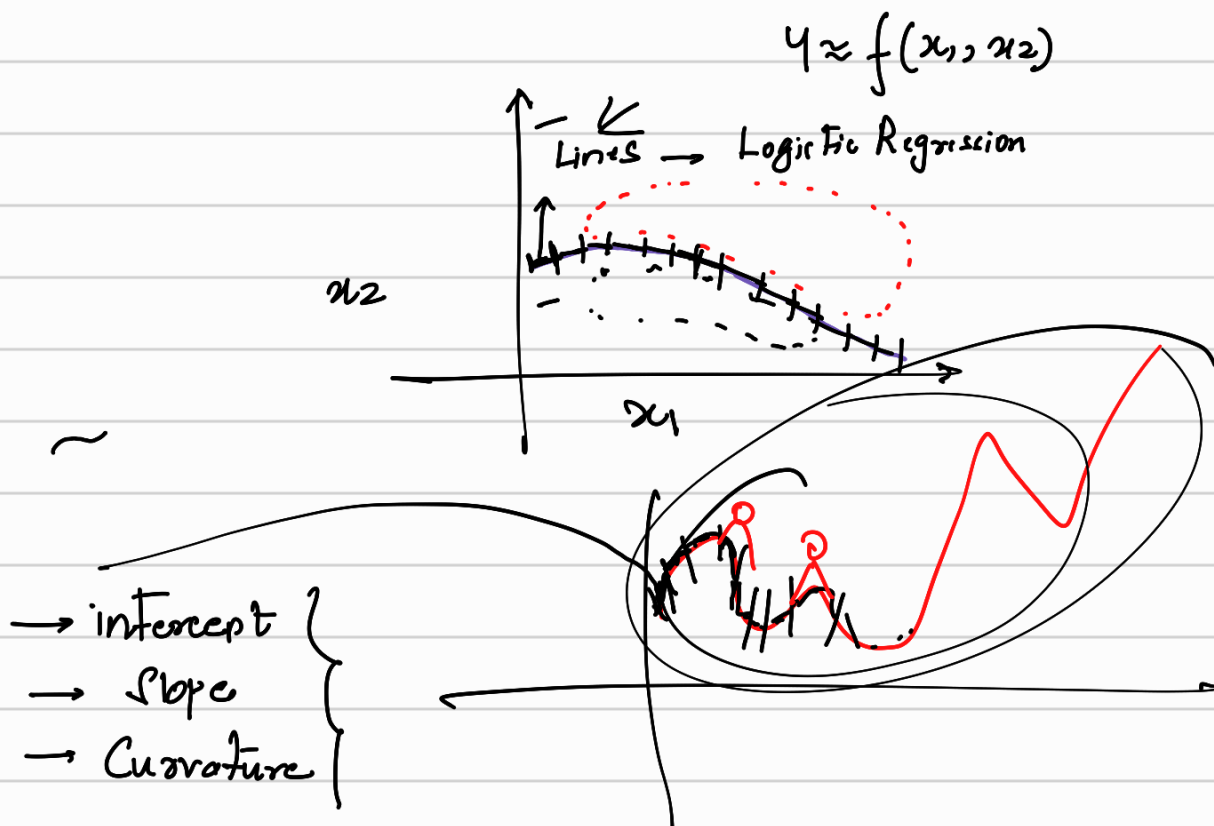 y ≈ f(x1, x2)
Lines → Logistic Regression
x2
x1
→ intercept
→ Slope
→ Curvature